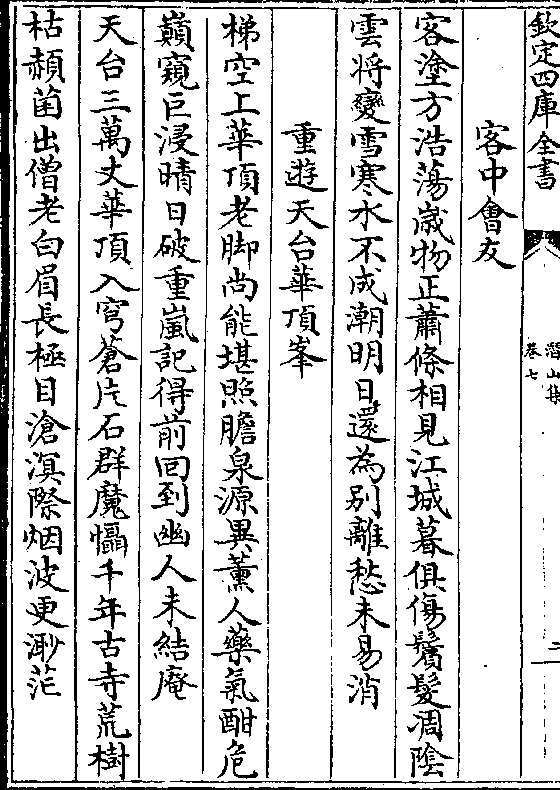 欽定四庫全書
潛山集
卷七
二
客中會友
客塗方浩蕩歲物正蕭條相見江城暮俱傷鬢髮凋陰
雲將變雪寒水不成潮明日還為別離愁未易消
重遊天台華頂峯
梯空上華頂老脚尚能堪照膽泉源異薰人藥氣酣危
巔窺巨浸晴日破重嵐記得前回到幽人未結庵
天台三萬丈華頂入穹蒼片石群魔懾千年古寺荒樹
枯頳菌出僧老白眉長極目滄溟際烟波更渺茫